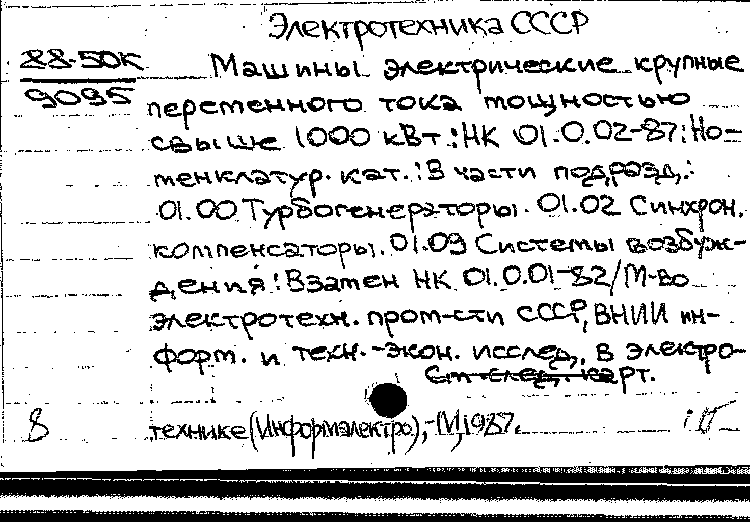 Электротехника СССР
88-50К
9095
Машины электрические крупные
переменного тока мощностью
свыше 1000 кВт.: НК 01.0.02-87: Но-
менклатур. кат.: В части подразд.:
01.00 Турбогенераторы. 01.02 Синхрон.
компенсаторы. 01.09 Системы возбуж-
дения: Взамен НК 01.0.01-82/М-во
электротехн. пром-сти СССР, ВНИИ ин-
форм. и техн.-экон. исслед. в электро-
Ст. след. карт.
технике (Информэлектро),-М, 1987.
8